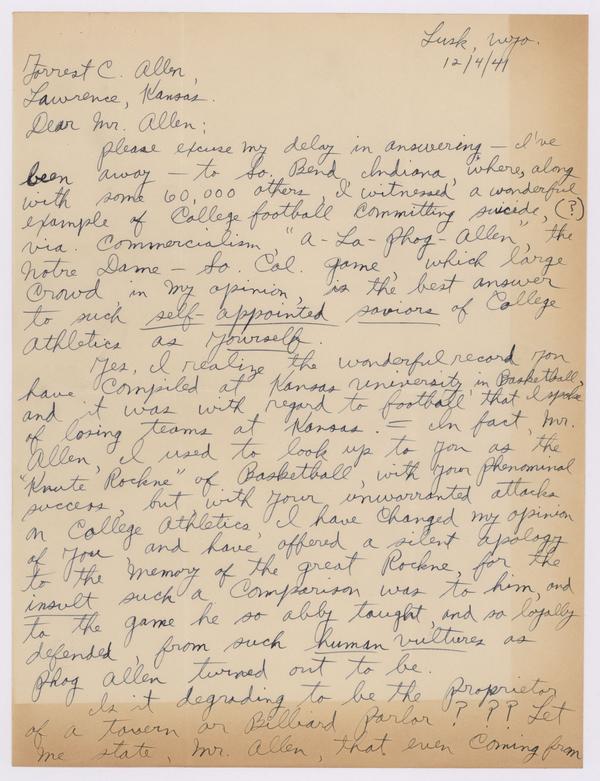 Lusk, Wyo.
12/4/41
Forrest C. Allen,
Lawrence, Kansas.
Dear Mr. Allen;
Please excuse my delay in answering – I've
been away – to So. Bend, Indiana, where, along
with some 60,000 others, I witnessed a wonderful
example of College football committing suicide, (?)
via. Commercialism, "a-La-Phog-Allen", the
Notre Dame – So. Cal. game, which large
Crowd, in my opinion, is the best answer
to such self-appointed saviors of College
Athletics as yourself.
Yes, I realize the wonderful record you
have compiled at Kansas University, in Basketball,
and it was with regard to football that I spoke
of losing teams at Kansas. – In fact, Mr.
Allen, I used to look up to you as the
"Knute Rockne" of Basketball, with your phenominal
success, but with your unwarranted attacks
on College Athletics, I have changed my opinion
of you and have offered a silent apology
to the memory of the great Rockne, for the
insult such a Comparison was to him, and
to the game he so ably taught, and so loyally
defended, from such human vultures as
Phog Allen turned out to be.
Is it degrading to be the Proprietor
of a tavern or Billiard Parlor ??? Let
me state, Mr. Allen, that even coming from